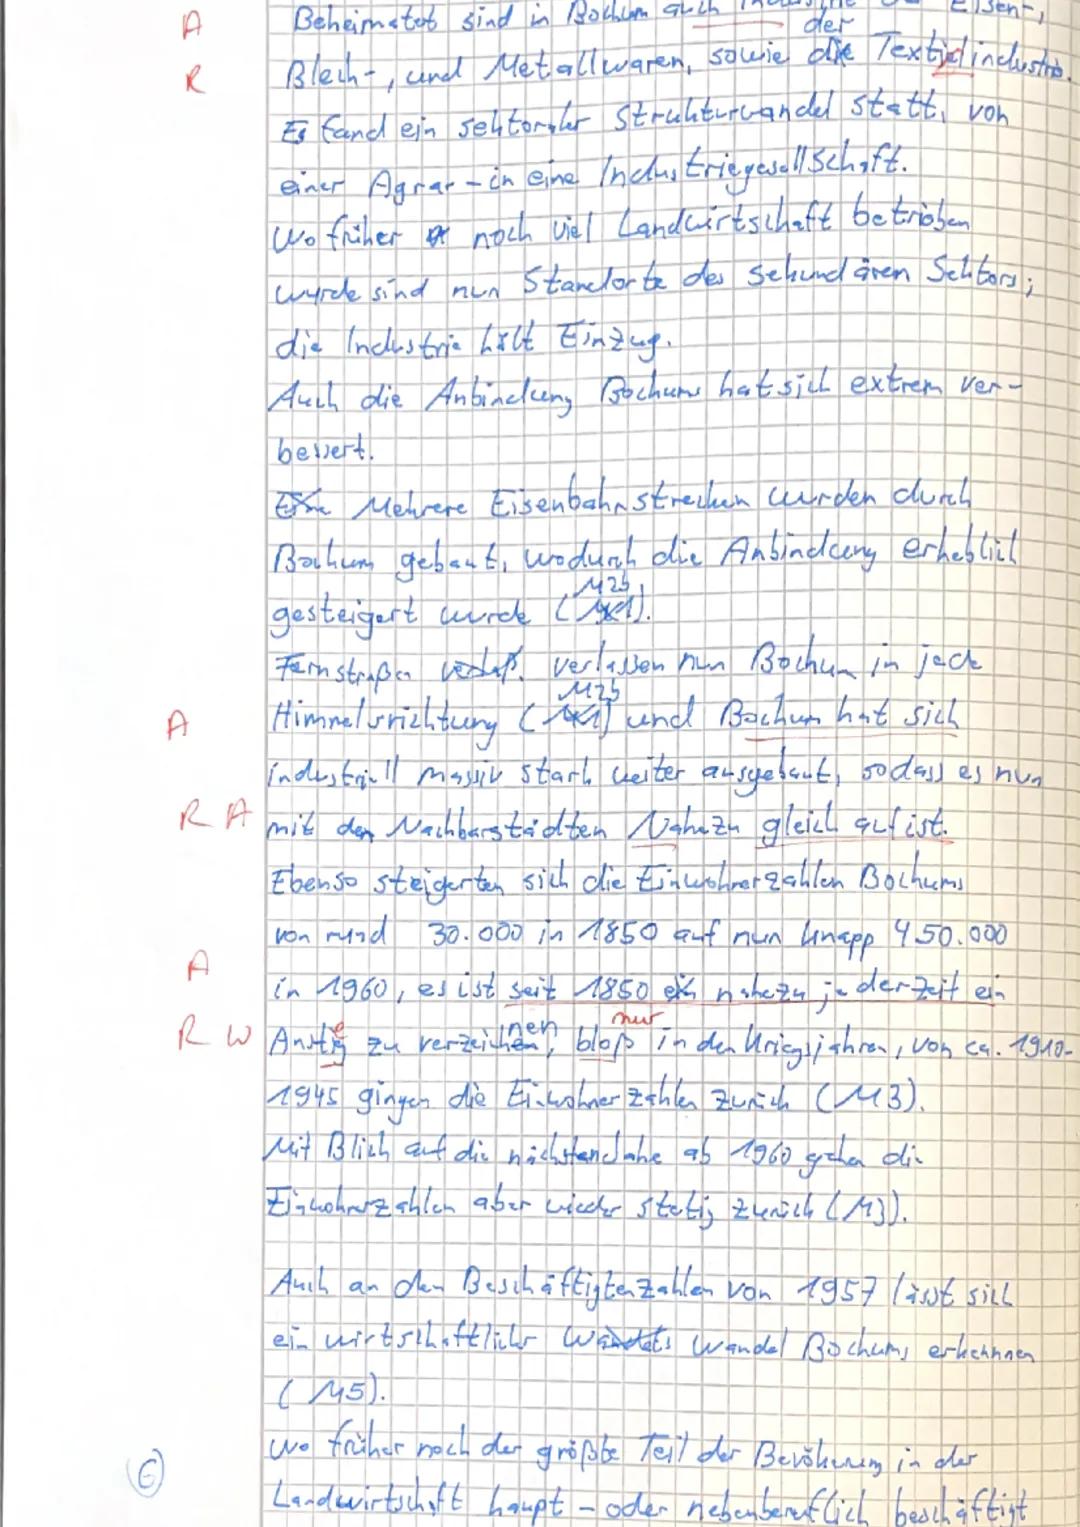 A Beheimatet sind in Bochum auch Industrie der Eisen-,
der
R Blech-, und Metallwaren, sowie die Textielindustrie.
Es fand ein sektoraler Strukturwandel statt, von
einer Agrar- in eine Industriegesellschaft.
Wo früher noch viel Landwirtschaft betrieben
wurde sind nun Standorte des sekundären Sektors;
die Industrie hält Einzug.
Auch die Anbindung Bochums hat sich extrem ver-
bessert.
Mehrere Eisenbahnstrecken wurden durch
Bochum gebaut, wodurch die Anbindung erheblich
M2b
gesteigert wurde (M1).
Fernstraßen verlassen nun Bochum in jede
M2b
A Himmelsrichtung (M1) und Bochum hat sich
industriell massiv stark weiter ausgebaut, sodass es nun
R A mit den Nachbarstädten Nahezu gleich auf ist.
Ebenso steigerten sich die Einwohnerzahlen Bochums
von rund 30.000 in 1850 auf nun knapp 450.000
A in 1960, es ist seit 1850 nahezu jederzeit ein
e nen nur
R W Anstig zu verzeichnen, bloß in den Kriegsjahren, von ca. 1910-
1945 gingen die Einwohnerzahlen zurück (M3).
Mit Blick auf die nächsten Jahre ab 1960 gehen die
Einwohnerzahlen aber wieder stetig zurück (M3).
Auch an den Beschäftigtenzahlen von 1957 lässt sich
ein wirtschaftlicher Wandel Bochums erkennen
(M5).
Wo früher noch der größte Teil der Bevölkerung in der
6 Landwirtschaft haupt- oder nebenberuflich beschäftigt